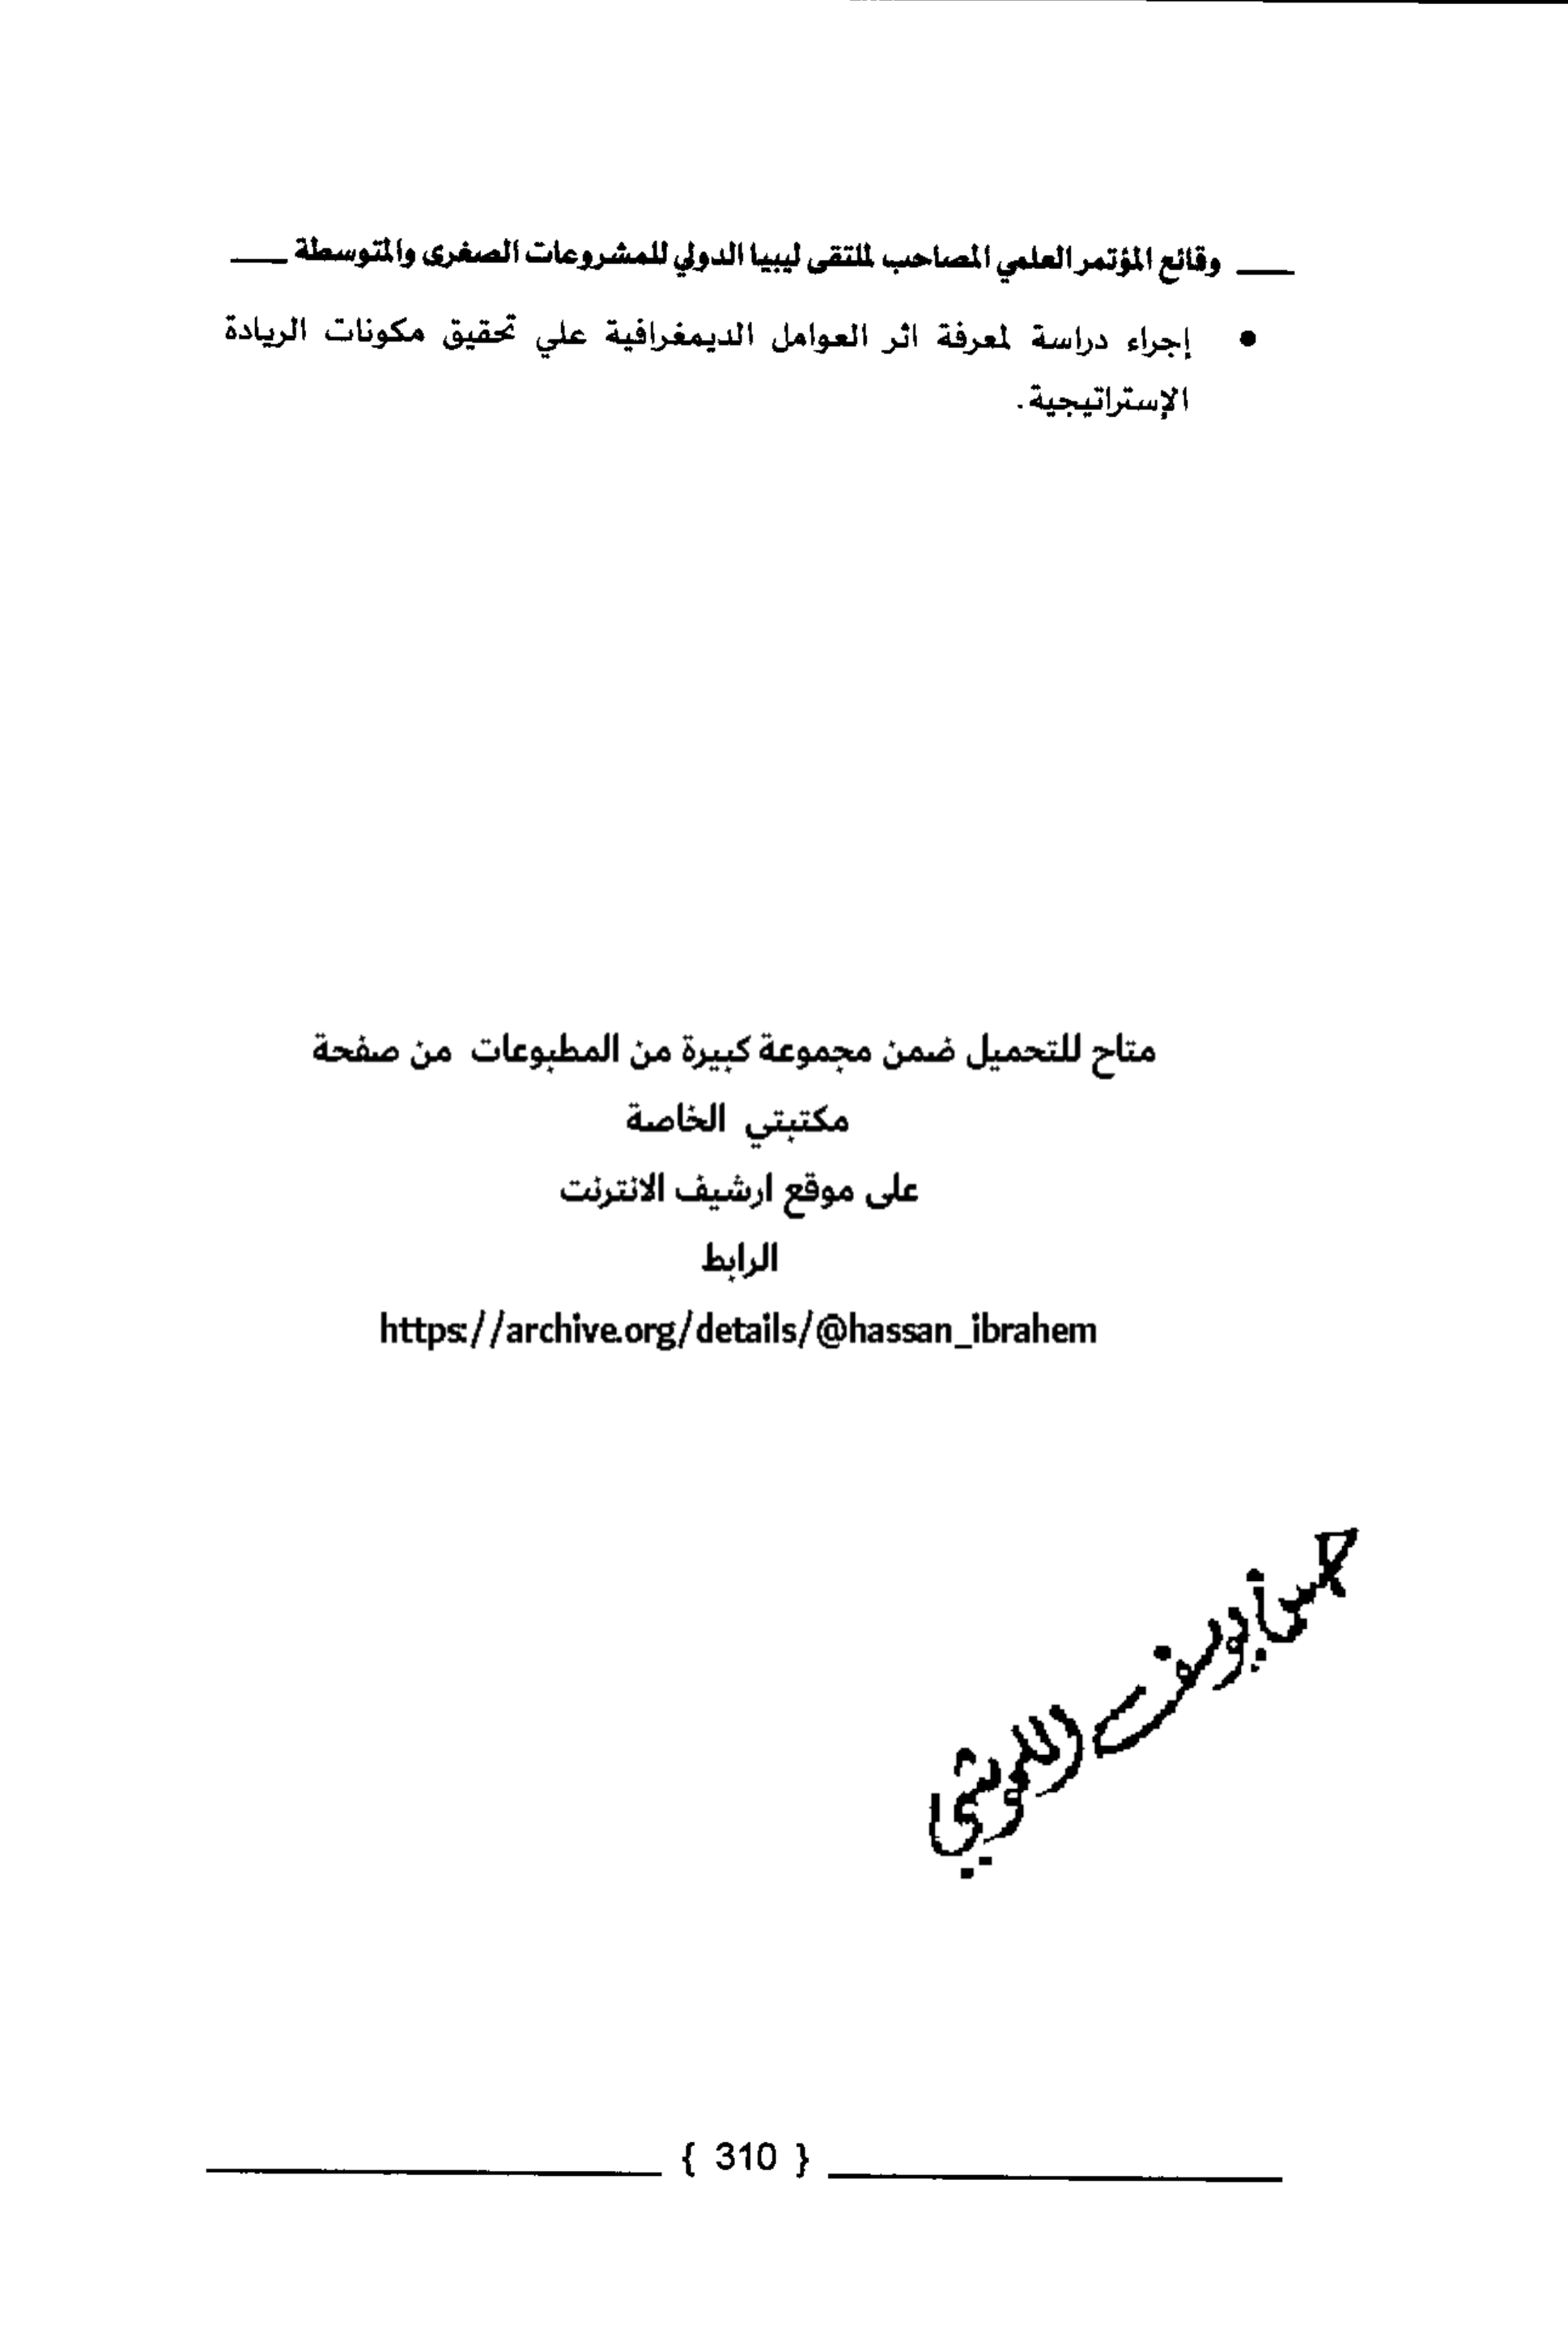 وقائع المؤتمر العلمي المصاحب لملتقى ليبيا الدولي للمشروعات الصغرى والمتوسطة
• إجراء دراسة لمعرفة اثر العوامل الديمغرافية علي تحقيق مكونات الريادة
الإستراتيجية.
متاح للتحميل ضمن مجموعة كبيرة من المطبوعات من صفحة
مكتبتي الخاصة
على موقع ارشيف الانترنت
الرابط
https://archive.org/details/@hassan_ibrahem
{ 310 }